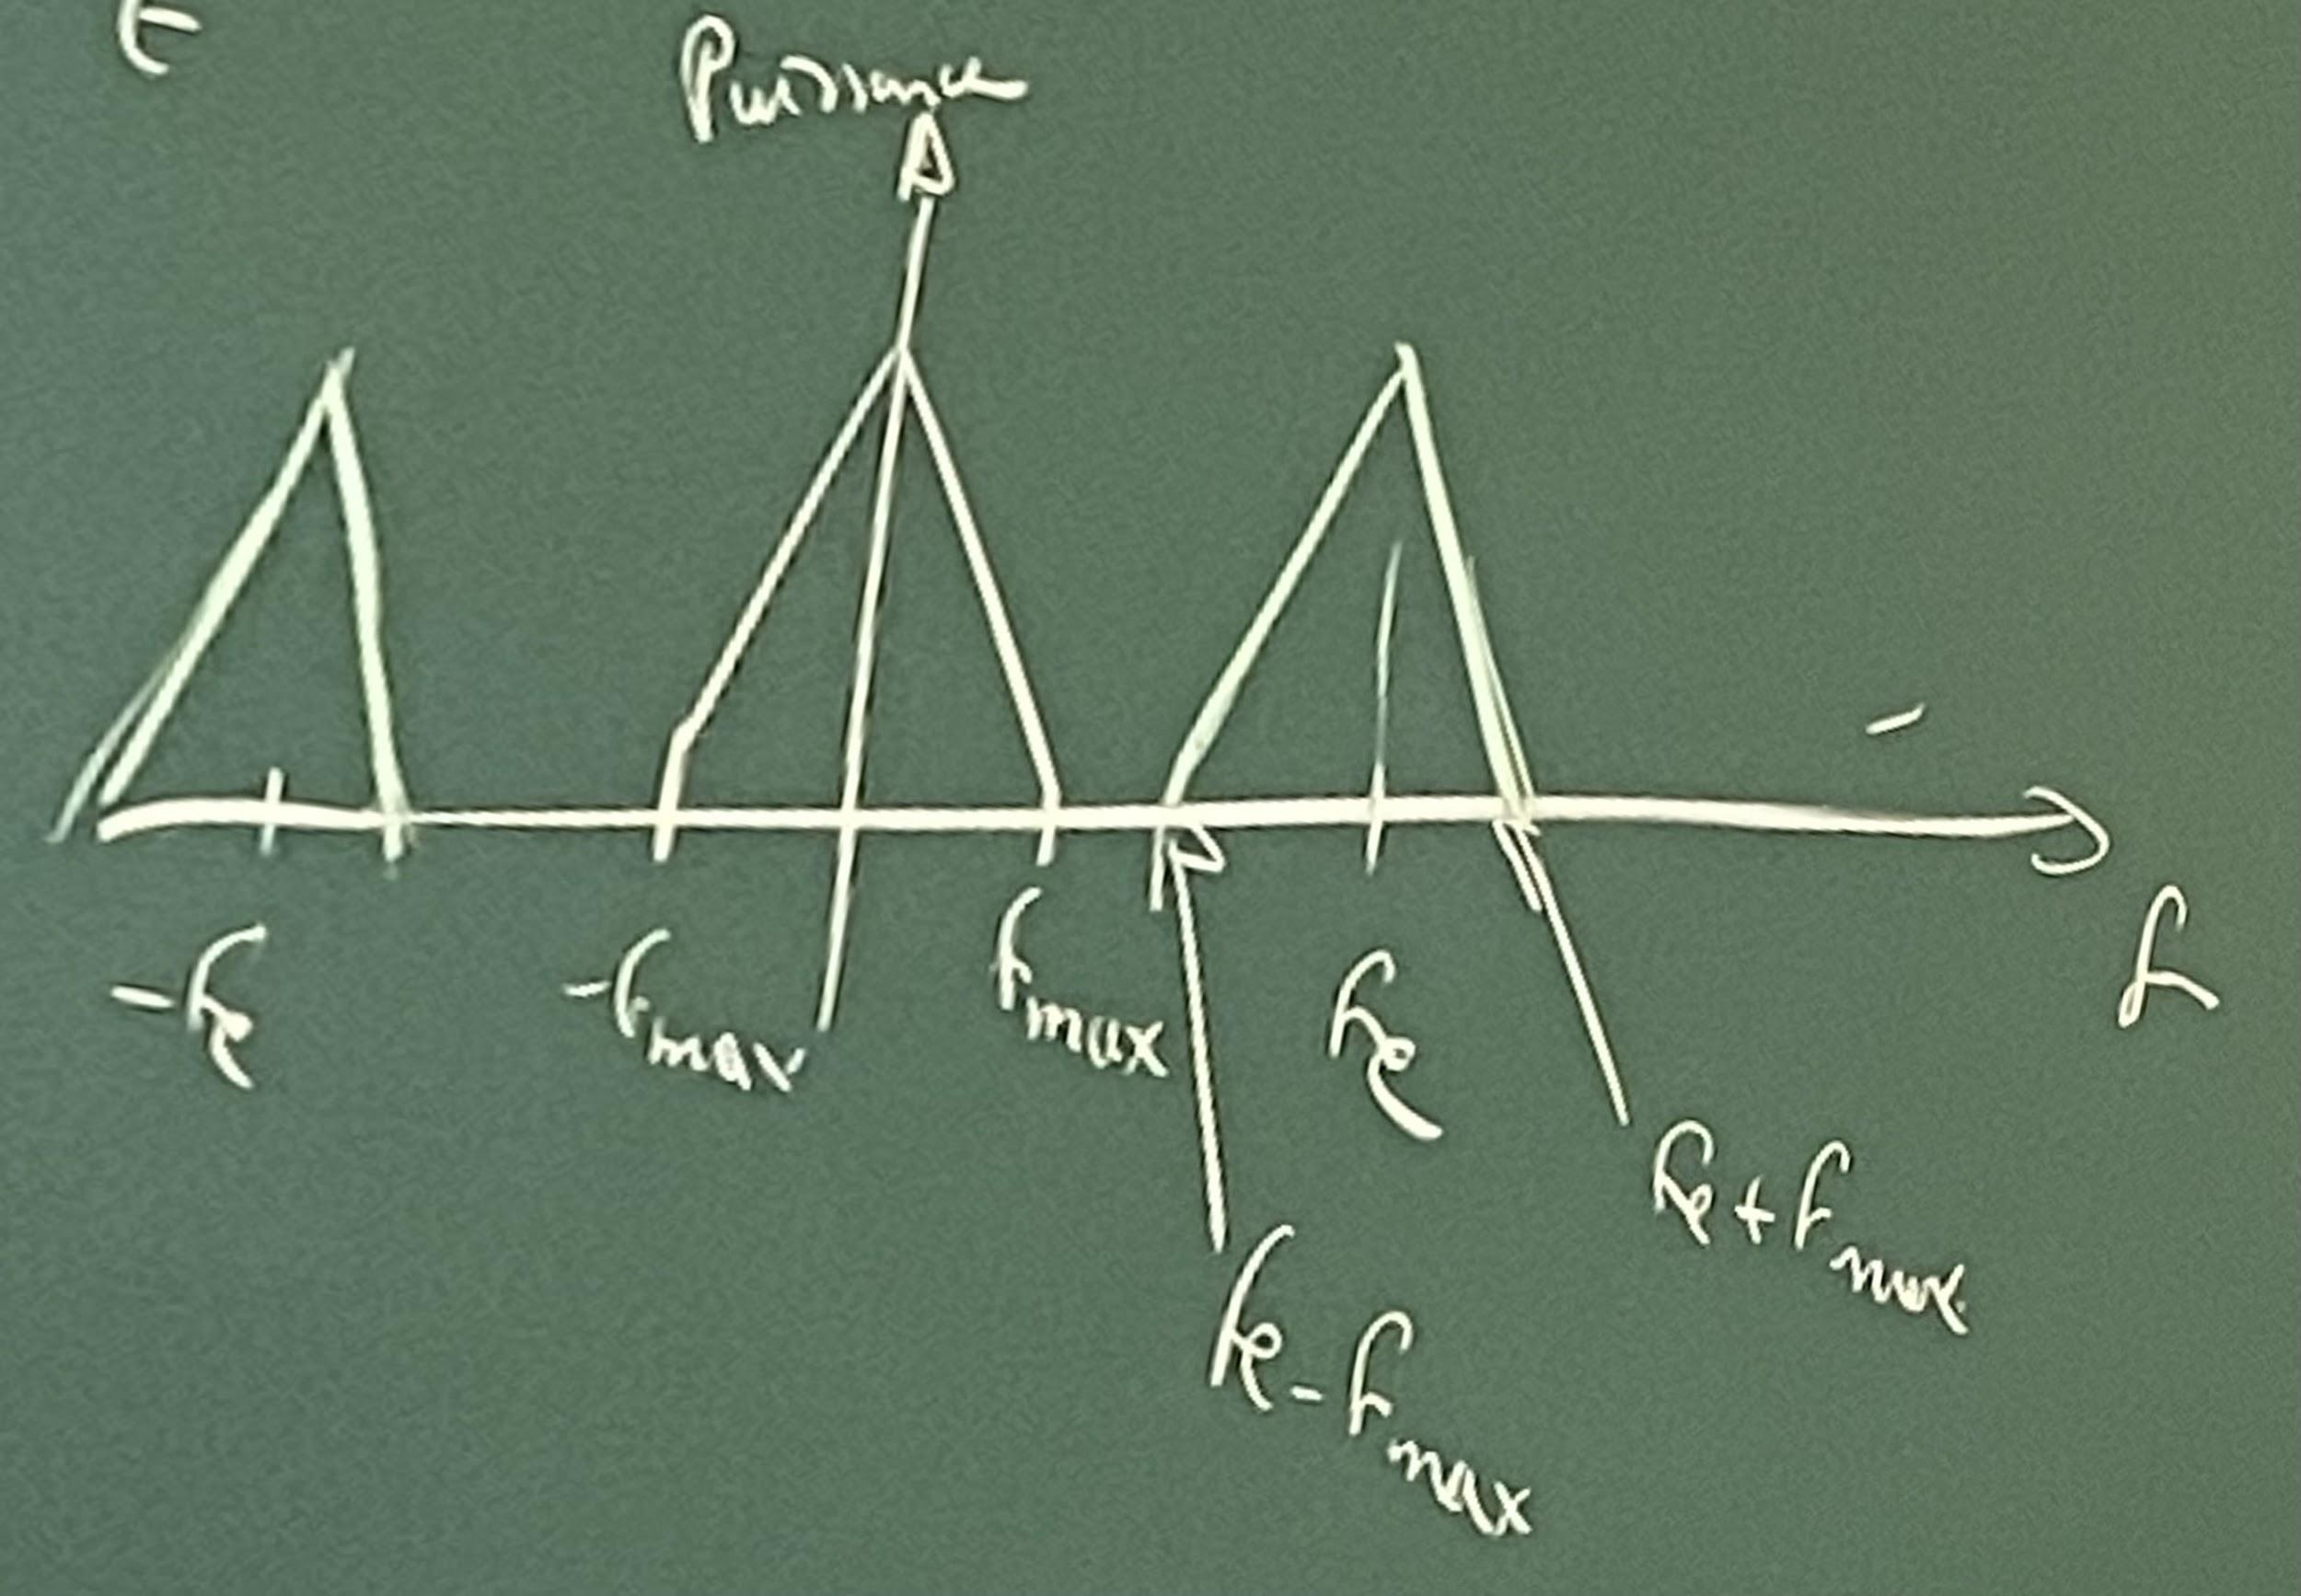 Puissance
-fe
-fmax
fmax
fe
f
fe+fmax
fe-fmax